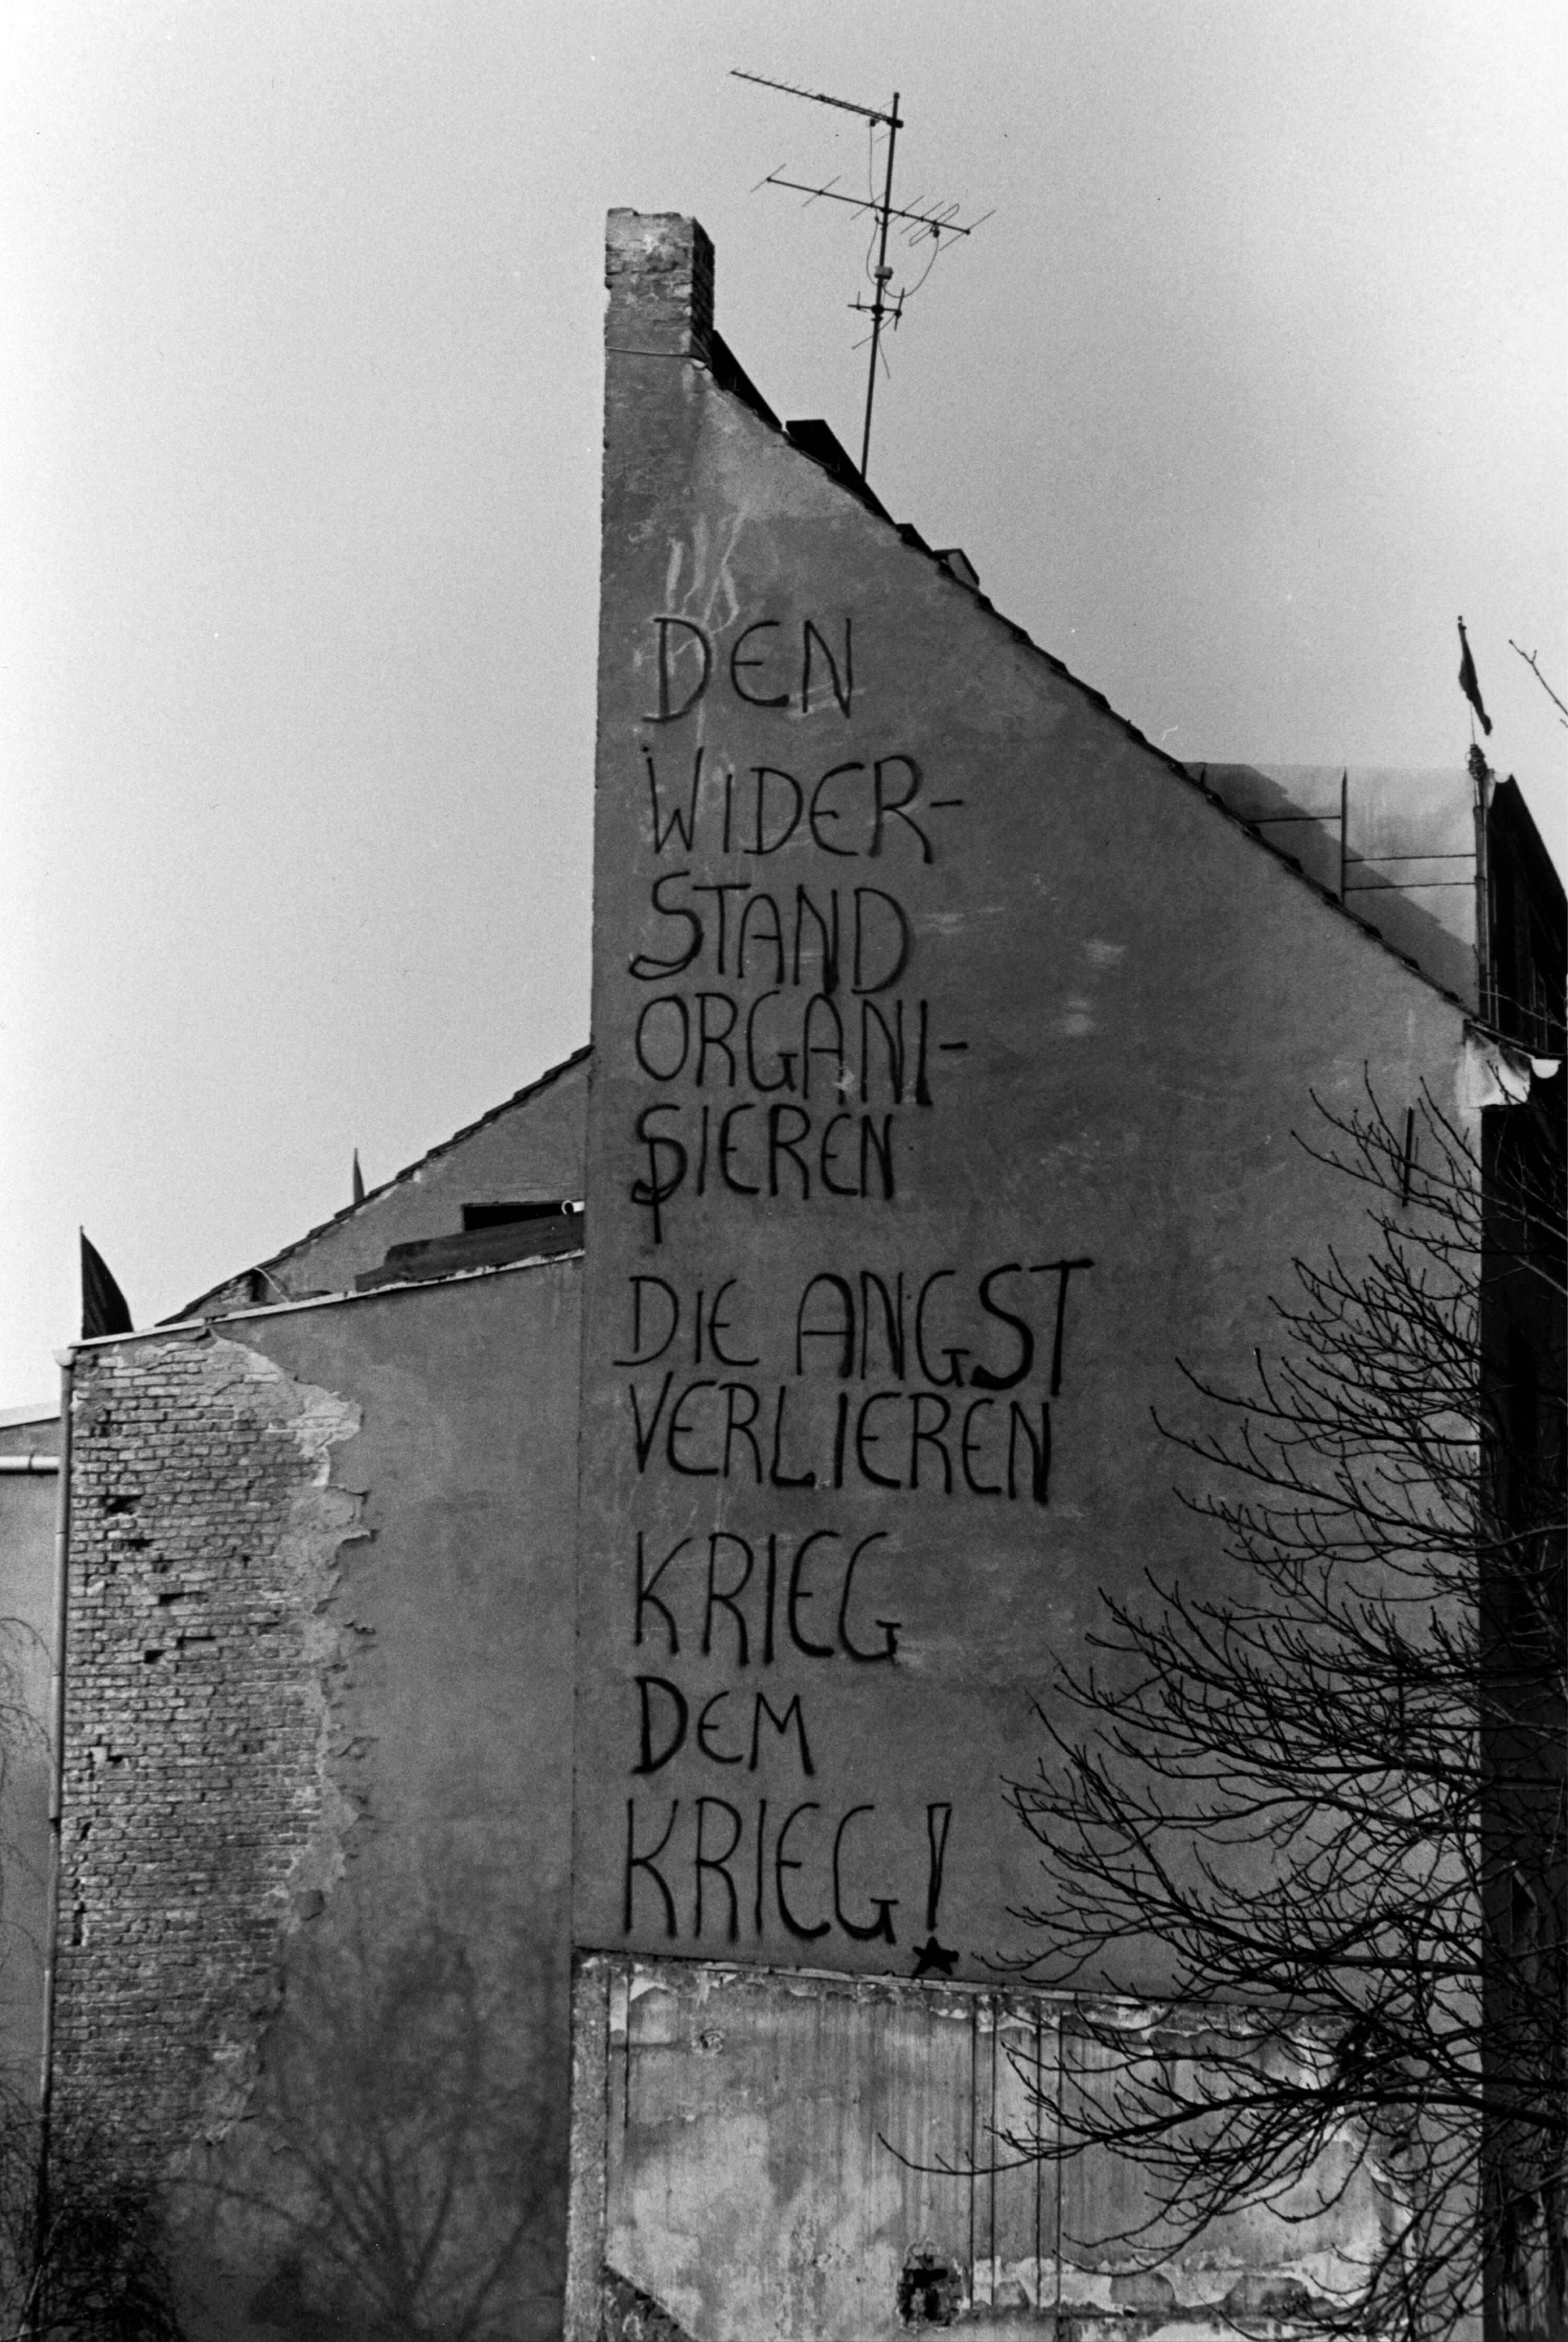 DEN
WIDER-
STAND
ORGANI-
SIEREN
DIE ANGST
VERLIEREN
KRIEG
DEM
KRIEG!